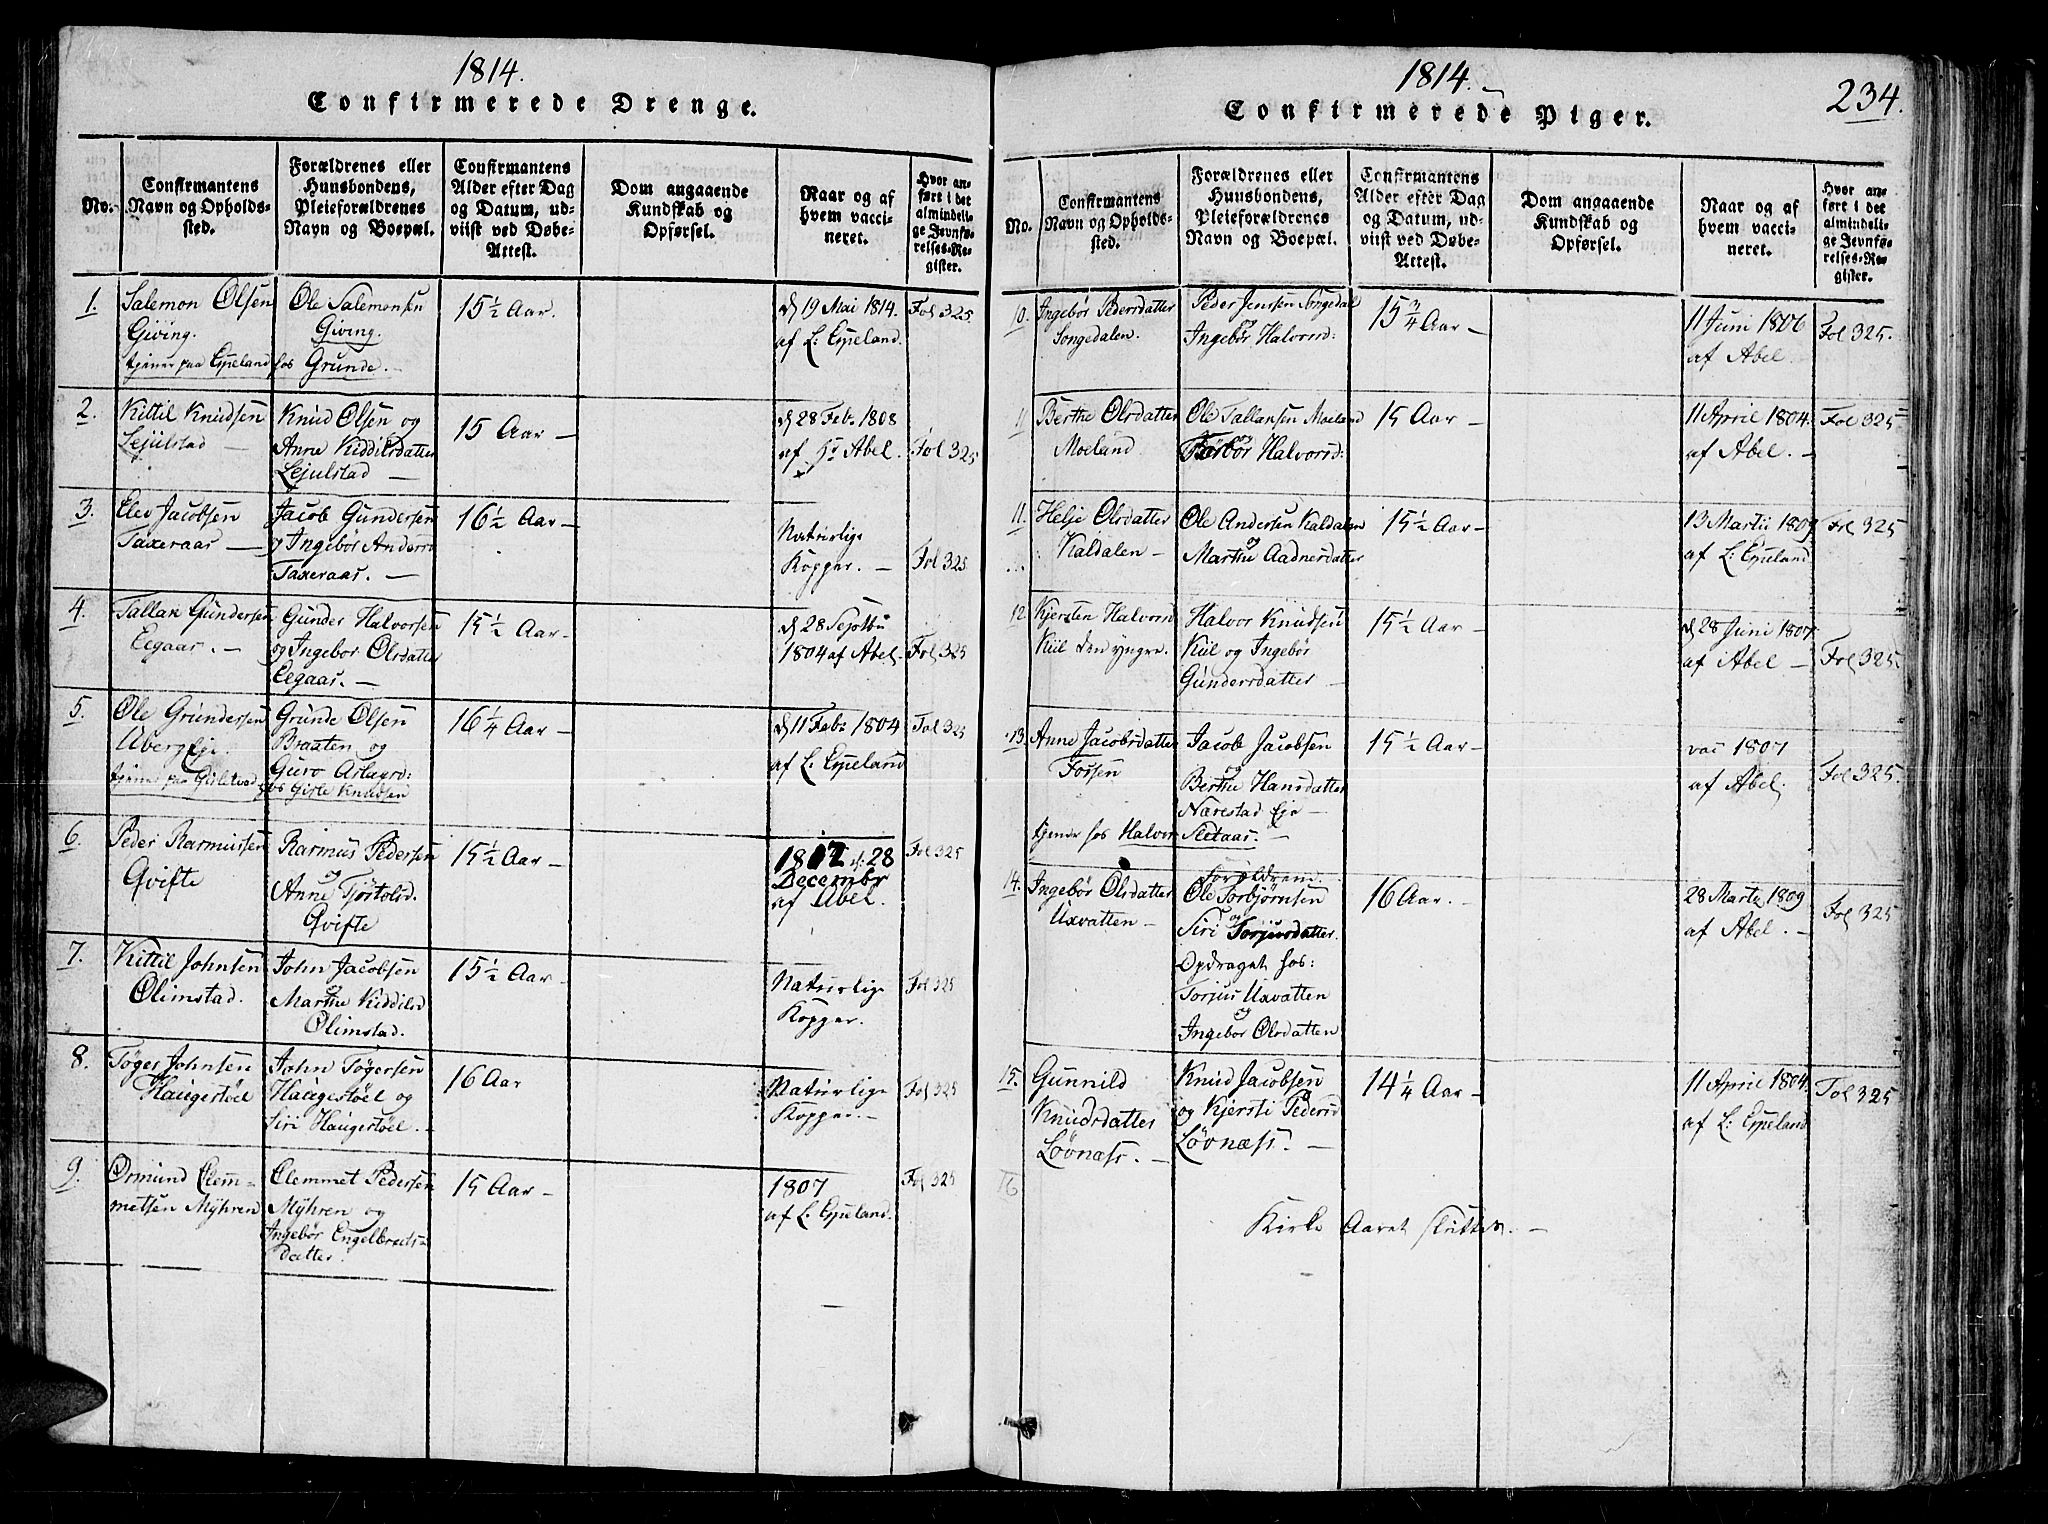 1814.
Confirmerede Drenge.
No.
Confirmantens
Navn og Opholds-
sted.
Forældrenes eller
Huusbondens,
Pleieforældrenes
Navn og Boepæl.
Confirmantens
Alder efter Dag
og Datum, ud-
viist ved Døbe-
Attest.
Dom angaaende
Kundskab og
Opførsel.
Naar og af
hvem vacci-
neret.
Hvor an-
ført i det
almindeli-
ge Jevnfø-
relses-Re-
gister.
1.
Salemon Olsen
Giving.
tjener paa Eppeland hos Grunde.
Ole Salemonsen
Giving.
15 1/2 Aar.
d 19 Mai 1814.
af L: Eppeland.
Fol 325
2.
Kittil Knudsen
Lejulstad —
Knud Olsen og
Anne Kiddilsdatter
Lejulstad —
15 Aar —
d 28 Feb: 1808
af Hr Abel.
Fol 325
3.
Elev Jacobsen
Taxeraas —
Jacob Gundersen
og Ingebør Andersd
Taxeraas. —
16 1/2 Aar —
Naturlige
Kopper. —
Fol 325
4.
Tallak Gundersen
Eegaas. —
Gunder Halvorsen
og Ingebor Olsdatter
Eegaas. —
15 1/2 Aar —
d 28 Septbr
1804 af Abel.
Fol 325
5.
Ole Grundersen
Uberg Eje.
tjener paa
Grunde Olsen
Braaten og
Guro Aslaxsd:
hos Gisle Knudsen
16 1/4 Aar —
d 11 Feb: 1804
af L: Eppeland
Fol 325
6.
Peder Rasmussen
Qvifte
Rasmus Pedersen
og
Anne
Qvifte
15 1/2 Aar —
d: 28
Decembr
af Abel.
Fol 325
7.
Kittil Johnsen
Olimstad.
John Jacobsen
og
Marthe Kiddilsd
Olimstad.
15 1/2 Aar —
Naturlige
Kopper.
Fol 325
8.
Tøger Johnsen
Haugestøel
John Tøgersen
Haugestøel og
Siri Haugestøel. —
16 Aar
Naturlige
Kopper. —
Fol 325
9.
Ormund Clem-
metsen Myhren
Clemmet Pedersen
Myhren og
Ingebør Engelbrets-
Datter.
15 Aar —
1807
af L: Eppeland.
Fol 325
1814.
234.
Confirmerede Piger.
No.
Confirmantens
Navn og Opholds-
sted.
Forældrenes eller
Huusbondens,
Pleieforældrenes
Navn og Boepæl.
Confirmantens
Alder efter Dag
og Datum, ud-
viist ved Døbe-
Attest.
Dom angaaende
Kundskab og
Opførsel.
Naar og af
hvem vacci-
neret.
Hvor an-
ført i det
almindeli-
ge Jevnfø-
relses-Re-
gister.
10.
Ingebør Pedersdatter
Songedalen.
Peder Jensen Songedal
og
Ingebør Halvorsd:
15 3/4 Aar —
11 Juni 1806
af Abel.
Fol 325.
11
Berthe Olsdatter
Moeland
Ole Tallaksen Moeland
og
Halvorsd:
15 Aar —
11 April 1804.
af Abel. —
Fol 325
11.
Helje Olsdatter
Kaldalen —
Ole Andersen Kaldalen
og
Marthe Aadnesdatter
15 1/2 Aar —
13 Martii 1809
af L: Eppeland
Fol 325
12
Kjersten Halvorsd
Kiil den yngre.
Halvor Knudsen
Kiil og Ingebør
Gundersdatter —
15 1/2 Aar —
d 28 Juni 1807.
af Abel —
Fol 325.
13.
Anne Jacobsdatter
Fossen
tjener hos Halvor Sletaas. —
Jacob Jacobsen
og
Berthe Hansdatter
Nærestad Eje —
15 1/2 Aar —
vac 1807
af Abel.
Fol 325.
14.
Ingebør Olsdatter
Uxvatten —
Forældrene.
Ole Torbjørnsen
og
Siri Torjusdatter.
Opdraget hos:
Torjus Uxvatten
og
Ingebor Olsdatten
16 Aar. —
28 Martii 1809
af Abel. —
Fol 325
15.
Gunnild
Knudsdatter
Løvnæss. —
Knud Jacobsen
og Kjersti Pedersd
Løvnæss. —
14 1/4 Aar —
11 April 1804.
af L: Eppeland
Fol 325
16
Kirke Aaret sluttet. —